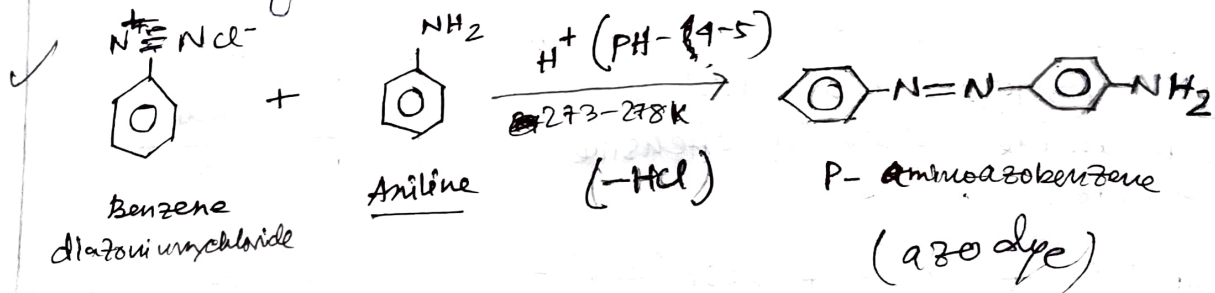 ✓ N⁺≡NCl⁻
+
NH₂
H⁺ (PH-(4-5)
273-278K
(-HCl)
-N=N-
-NH₂
Benzene
diazoniumchloride
Aniline
P- aminoazobenzene
(azo dye)